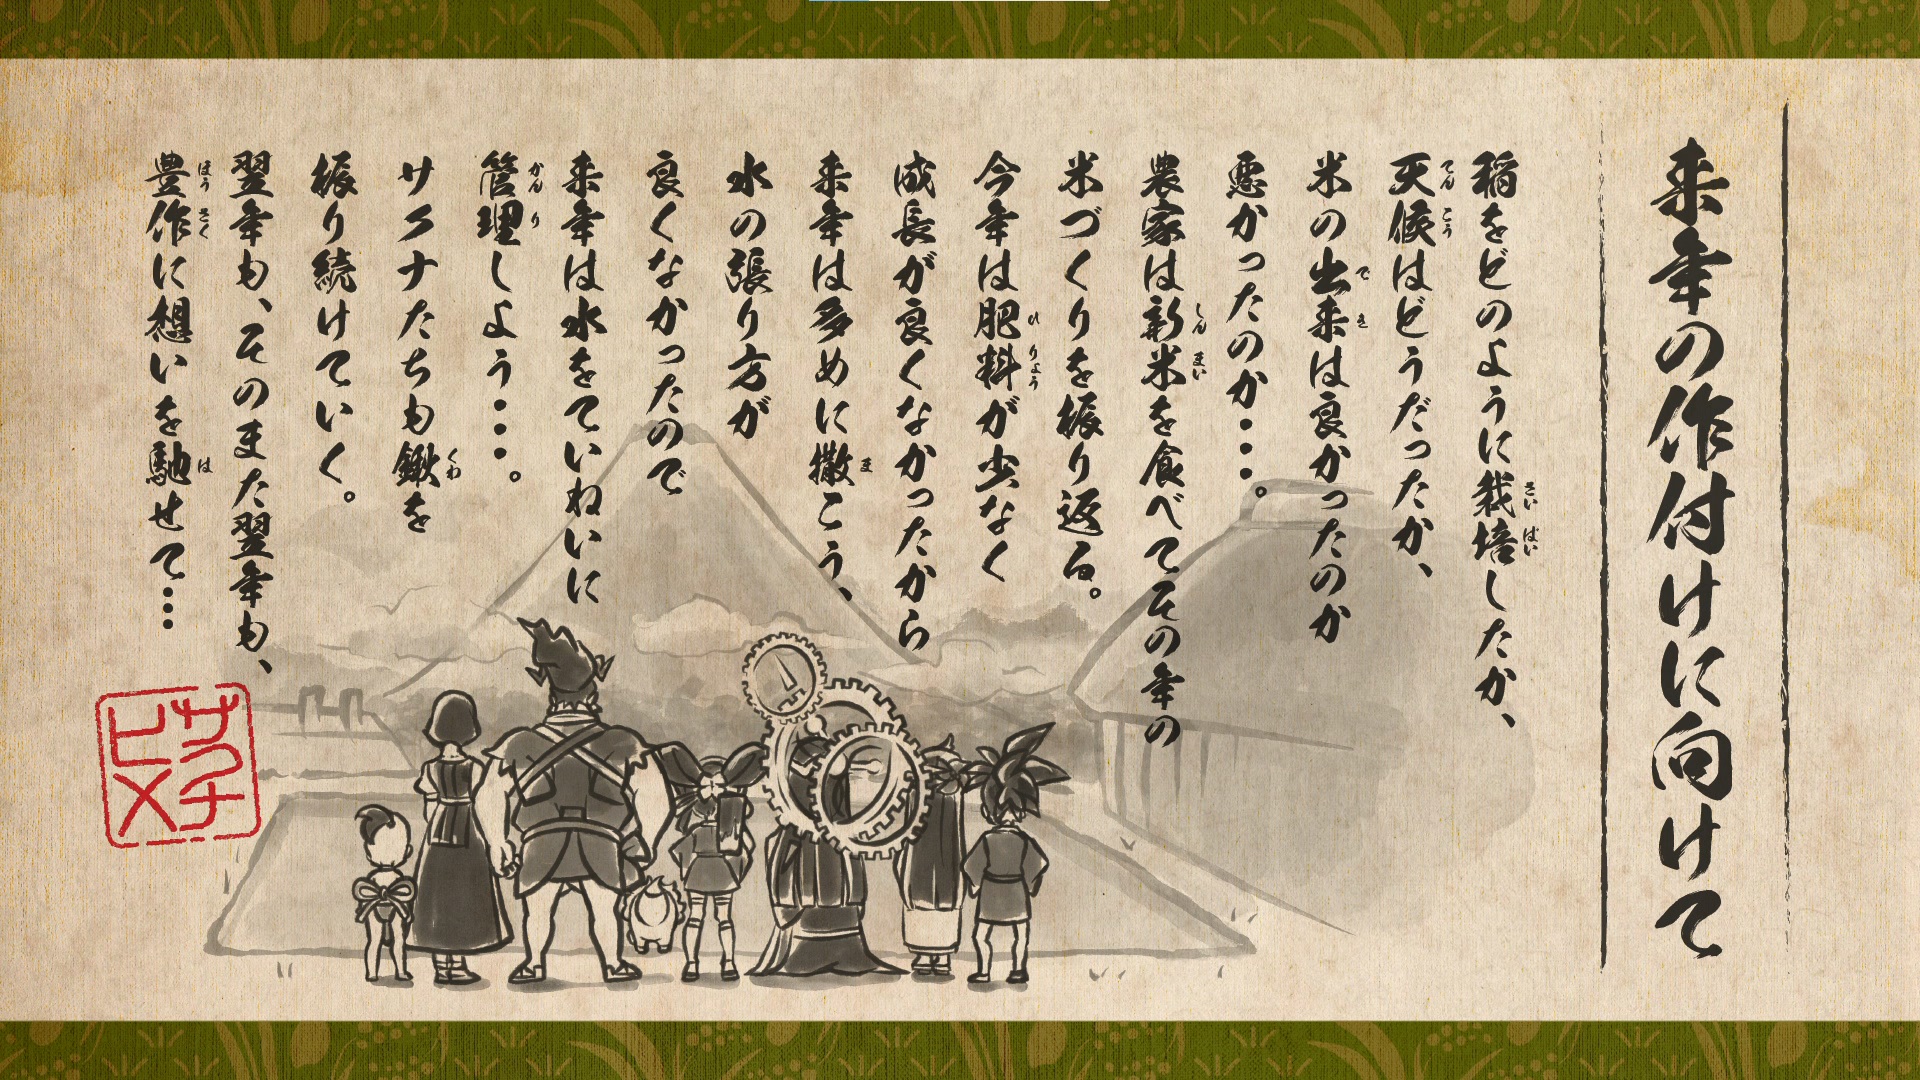 来年の作付けに向けて
稲をどのように栽培したか、
天候はどうだったか、
米の出来は良かったのか
悪かったのか・・・・。
農家は新米を食べてその年の
米づくりを振り返る。
今年は肥料が少なく
成長が良くなかったから
来年は多めに撒こう、
水の張り方が
良くなかったので
来年は水をていねいに
管理しよう・・・。
サクナたちも鍬を
振り続けていく。
翌年も、そのまた翌年も、
豊作に想いを馳せて…
サクナ
ヒメ